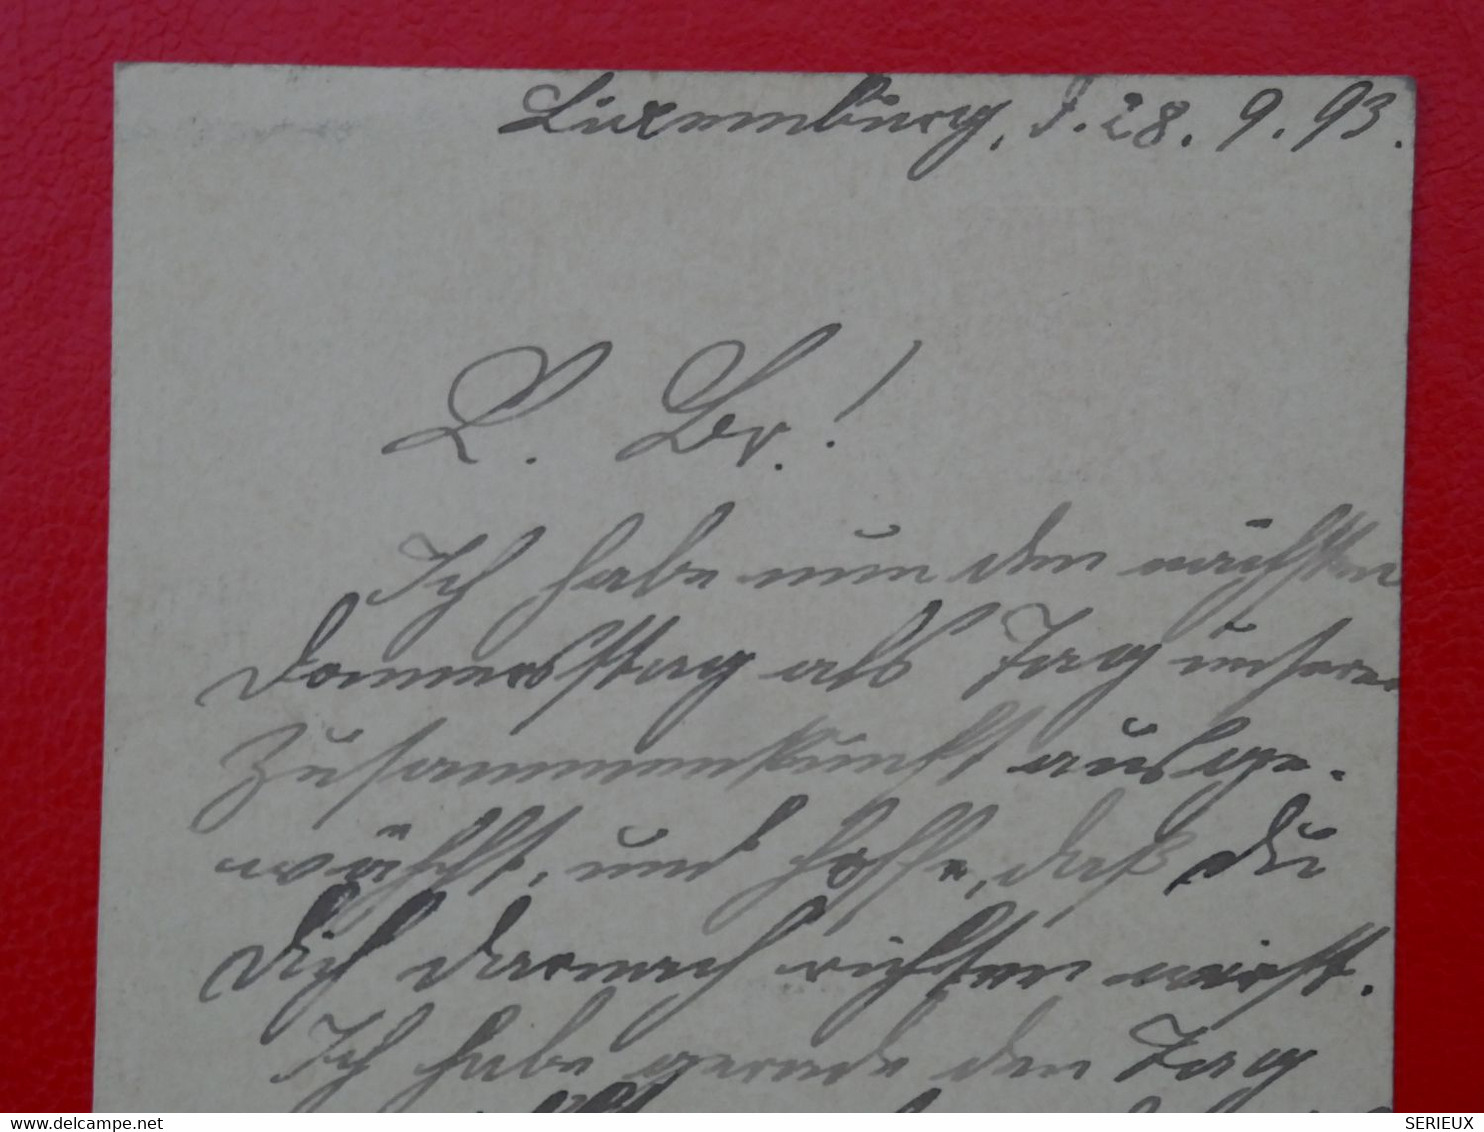 Luxemburg, d. 28. 9. 93.
L. Br.!
Ich habe nun den nächsten
Donnerstag als Tag unserer
Zusammenkunft ausge-
wählt, und hoffe, daß Du
Dich darnach richten wirst.
Ich habe gerade den Tag
www.delcampe.net
SERIEUX